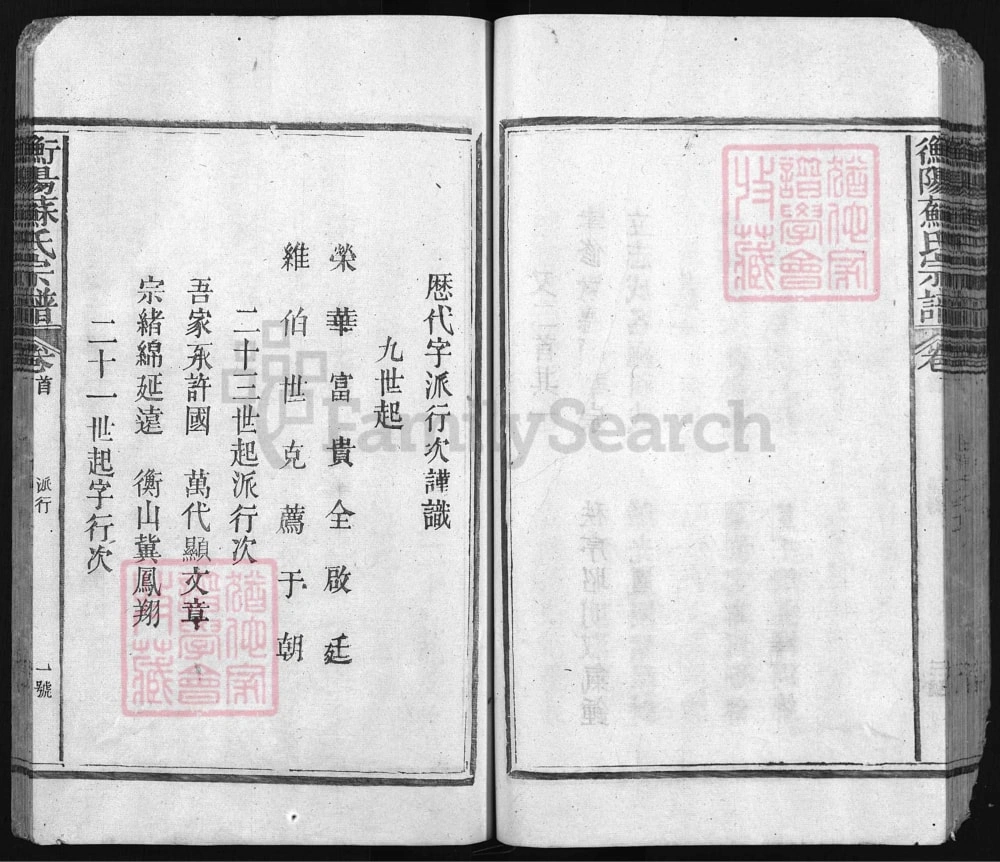 衡陽蘇氏宗譜 卷
歷代字派行次謹識
九世起
榮華富貴全啟廷
維伯世克薦于朝
二十三世起派行次
吾家承許國 萬代顯文章
宗緒綿延遠 衡山冀鳳翔
二十一世起字行次
衡陽蘇氏宗譜 卷首 派行 一號
FamilySearch